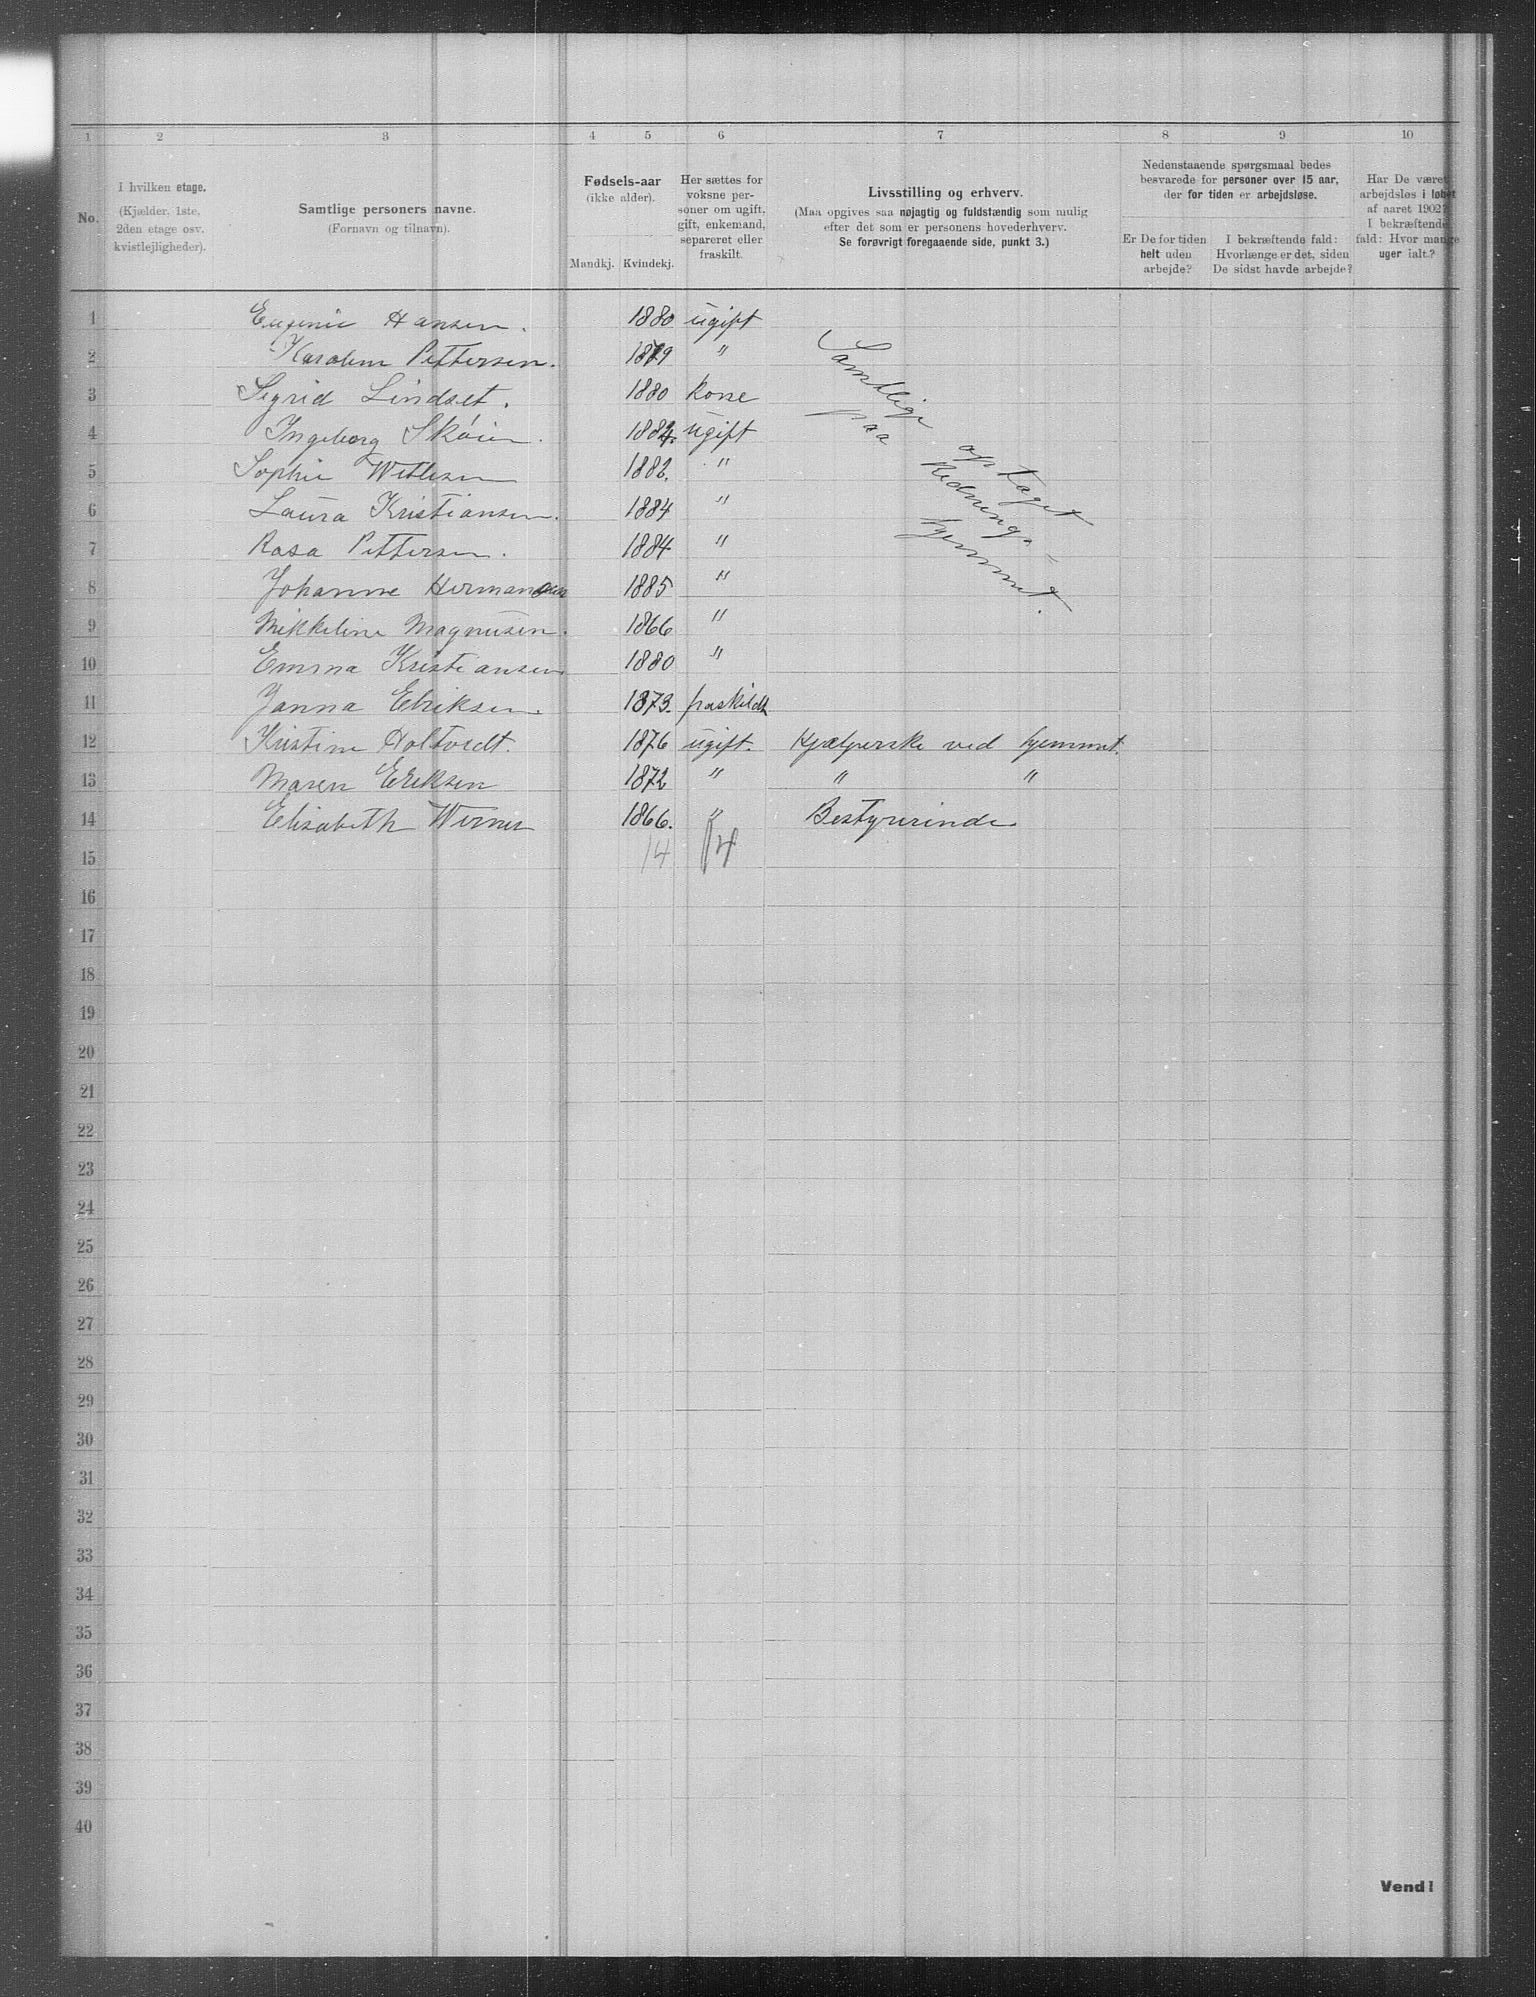 1 2 3 4 5 6 7 8 9 10
No.
I hvilken etage.
(Kjælder, 1ste,
2den etage osv.
kvistlejligheder).
Samtlige personers navne.
(Fornavn og tilnavn).
Fødsels-aar
(ikke alder).
Mandkj. Kvindekj.
Her sættes for
voksne per-
soner om ugift,
gift, enkemand,
separeret eller
fraskilt.
Livsstilling og erhverv.
(Maa opgives saa nøjagtig og fuldstændig som mulig
efter det som er personens hovederhverv.
Se forøvrigt foregaaende side, punkt 3.)
Nedenstaaende spørgsmaal bedes
besvarede for personer over 15 aar,
der for tiden er arbejdsløse.
Er De for tiden
helt uden
arbejde?
I bekræftende fald:
Hvorlænge er det, siden
De sidst havde arbejde?
Har De været
arbejdsløs i løbet
af aaret 1902?
I bekræftende
fald: Hvor mange
uger ialt.?
1 Eugenie Hansen. 1880 ugift
2 Karoline Pettersen. 1879 "
3 Sigrid Lindset. 1880 kone
4 Ingeborg Skøien. 1884. ugift
5 Sophie Wetlesen 1882. "
6 Laura Kristiansen. 1884 "
7 Rosa Pettersen. 1884 "
8 Johanne Hermansen 1885 "
9 Mikkeline Magnusen. 1866 "
10 Emma Kristiansen 1880 "
11 Janna Eriksen. 1873. fraskildt
Samtlige optaget
paa Rednings-
hjemmet.
12 Kristine Holtvedt. 1876 ugift. Hjælperske ved hjemmet.
13 Maren Eriksen 1872 " " "
14 Elisabeth Werner 1866. " Bestyrerinde
15 14 14
16
17
18
19
20
21
22
23
24
25
26
27
28
29
30
31
32
33
34
35
36
37
38
39
40
Vend!